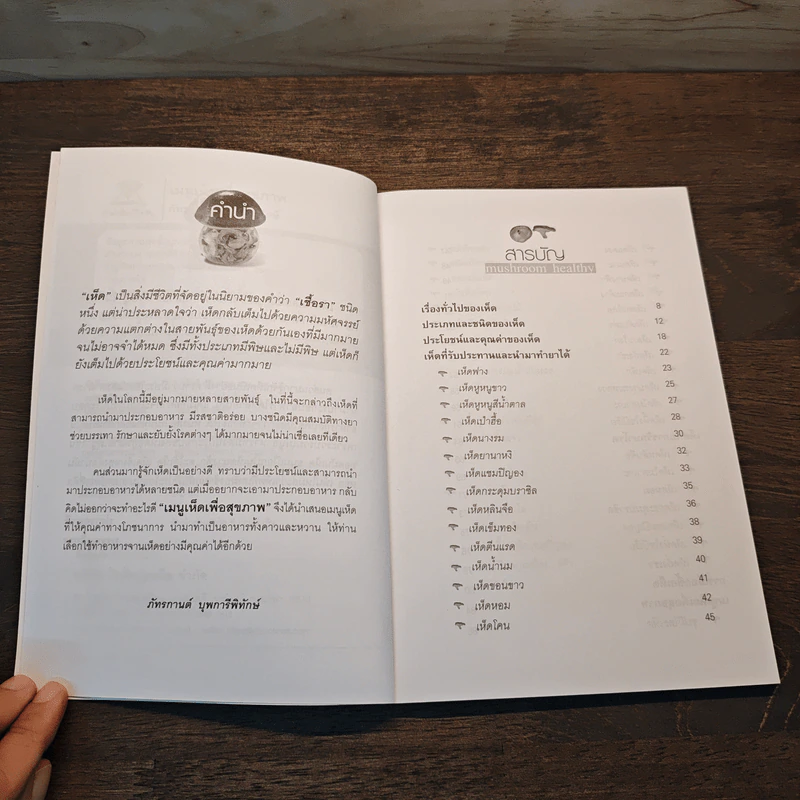 คำนำ
"เห็ด" เป็นสิ่งมีชีวิตที่จัดอยู่ในนิยามของคำว่า "เชื้อรา" ชนิด
หนึ่ง แต่น่าประหลาดใจว่า เห็ดกลับเต็มไปด้วยความมหัศจรรย์
ด้วยความแตกต่างในสายพันธุ์ของเห็ดด้วยกันเองที่มีมากมาย
จนไม่อาจจำได้หมด ซึ่งมีทั้งประเภทมีพิษและไม่มีพิษ แต่เห็ดก็
ยังเต็มไปด้วยประโยชน์และคุณค่ามากมาย
เห็ดในโลกนี้มีอยู่มากมายหลายสายพันธุ์ ในที่นี้จะกล่าวถึงเห็ดที่
สามารถนำมาประกอบอาหาร มีรสชาติอร่อย บางชนิดมีคุณสมบัติทางยา
ช่วยบรรเทา รักษาและยับยั้งโรคต่างๆ ได้มากมายจนไม่น่าเชื่อเลยทีเดียว
คนส่วนมากรู้จักเห็ดเป็นอย่างดี ทราบว่ามีประโยชน์และสามารถนำ
มาประกอบอาหารได้หลายชนิด แต่เมื่ออยากจะเอามาประกอบอาหาร กลับ
คิดไม่ออกว่าจะทำอะไรดี "เมนูเห็ดเพื่อสุขภาพ" จึงได้นำเสนอเมนูเห็ด
ที่ให้คุณค่าทางโภชนาการ นำมาทำเป็นอาหารทั้งคาวและหวาน ให้ท่าน
เลือกใช้ทำอาหารจานเห็ดอย่างมีคุณค่าได้อีกด้วย
ภัทรกานต์ บุพการีพิทักษ์
สารบัญ
mushroom healthy
เรื่องทั่วไปของเห็ด 8
ประเภทและชนิดของเห็ด 12
ประโยชน์และคุณค่าของเห็ด 18
เห็ดที่รับประทานและนำมาทำยาได้ 22
เห็ดฟาง 23
เห็ดหูหนูขาว 25
เห็ดหูหนูสีน้ำตาล 27
เห็ดเป๋าฮื้อ 28
เห็ดนางรม 30
เห็ดยานางิ 32
เห็ดแชมปิญอง 33
เห็ดกระดุมบราซิล 35
เห็ดหลินจือ 36
เห็ดเข็มทอง 38
เห็ดตีนแรด 39
เห็ดน้ำนม 40
เห็ดขอนขาว 41
เห็ดหอม 42
เห็ดโคน 45